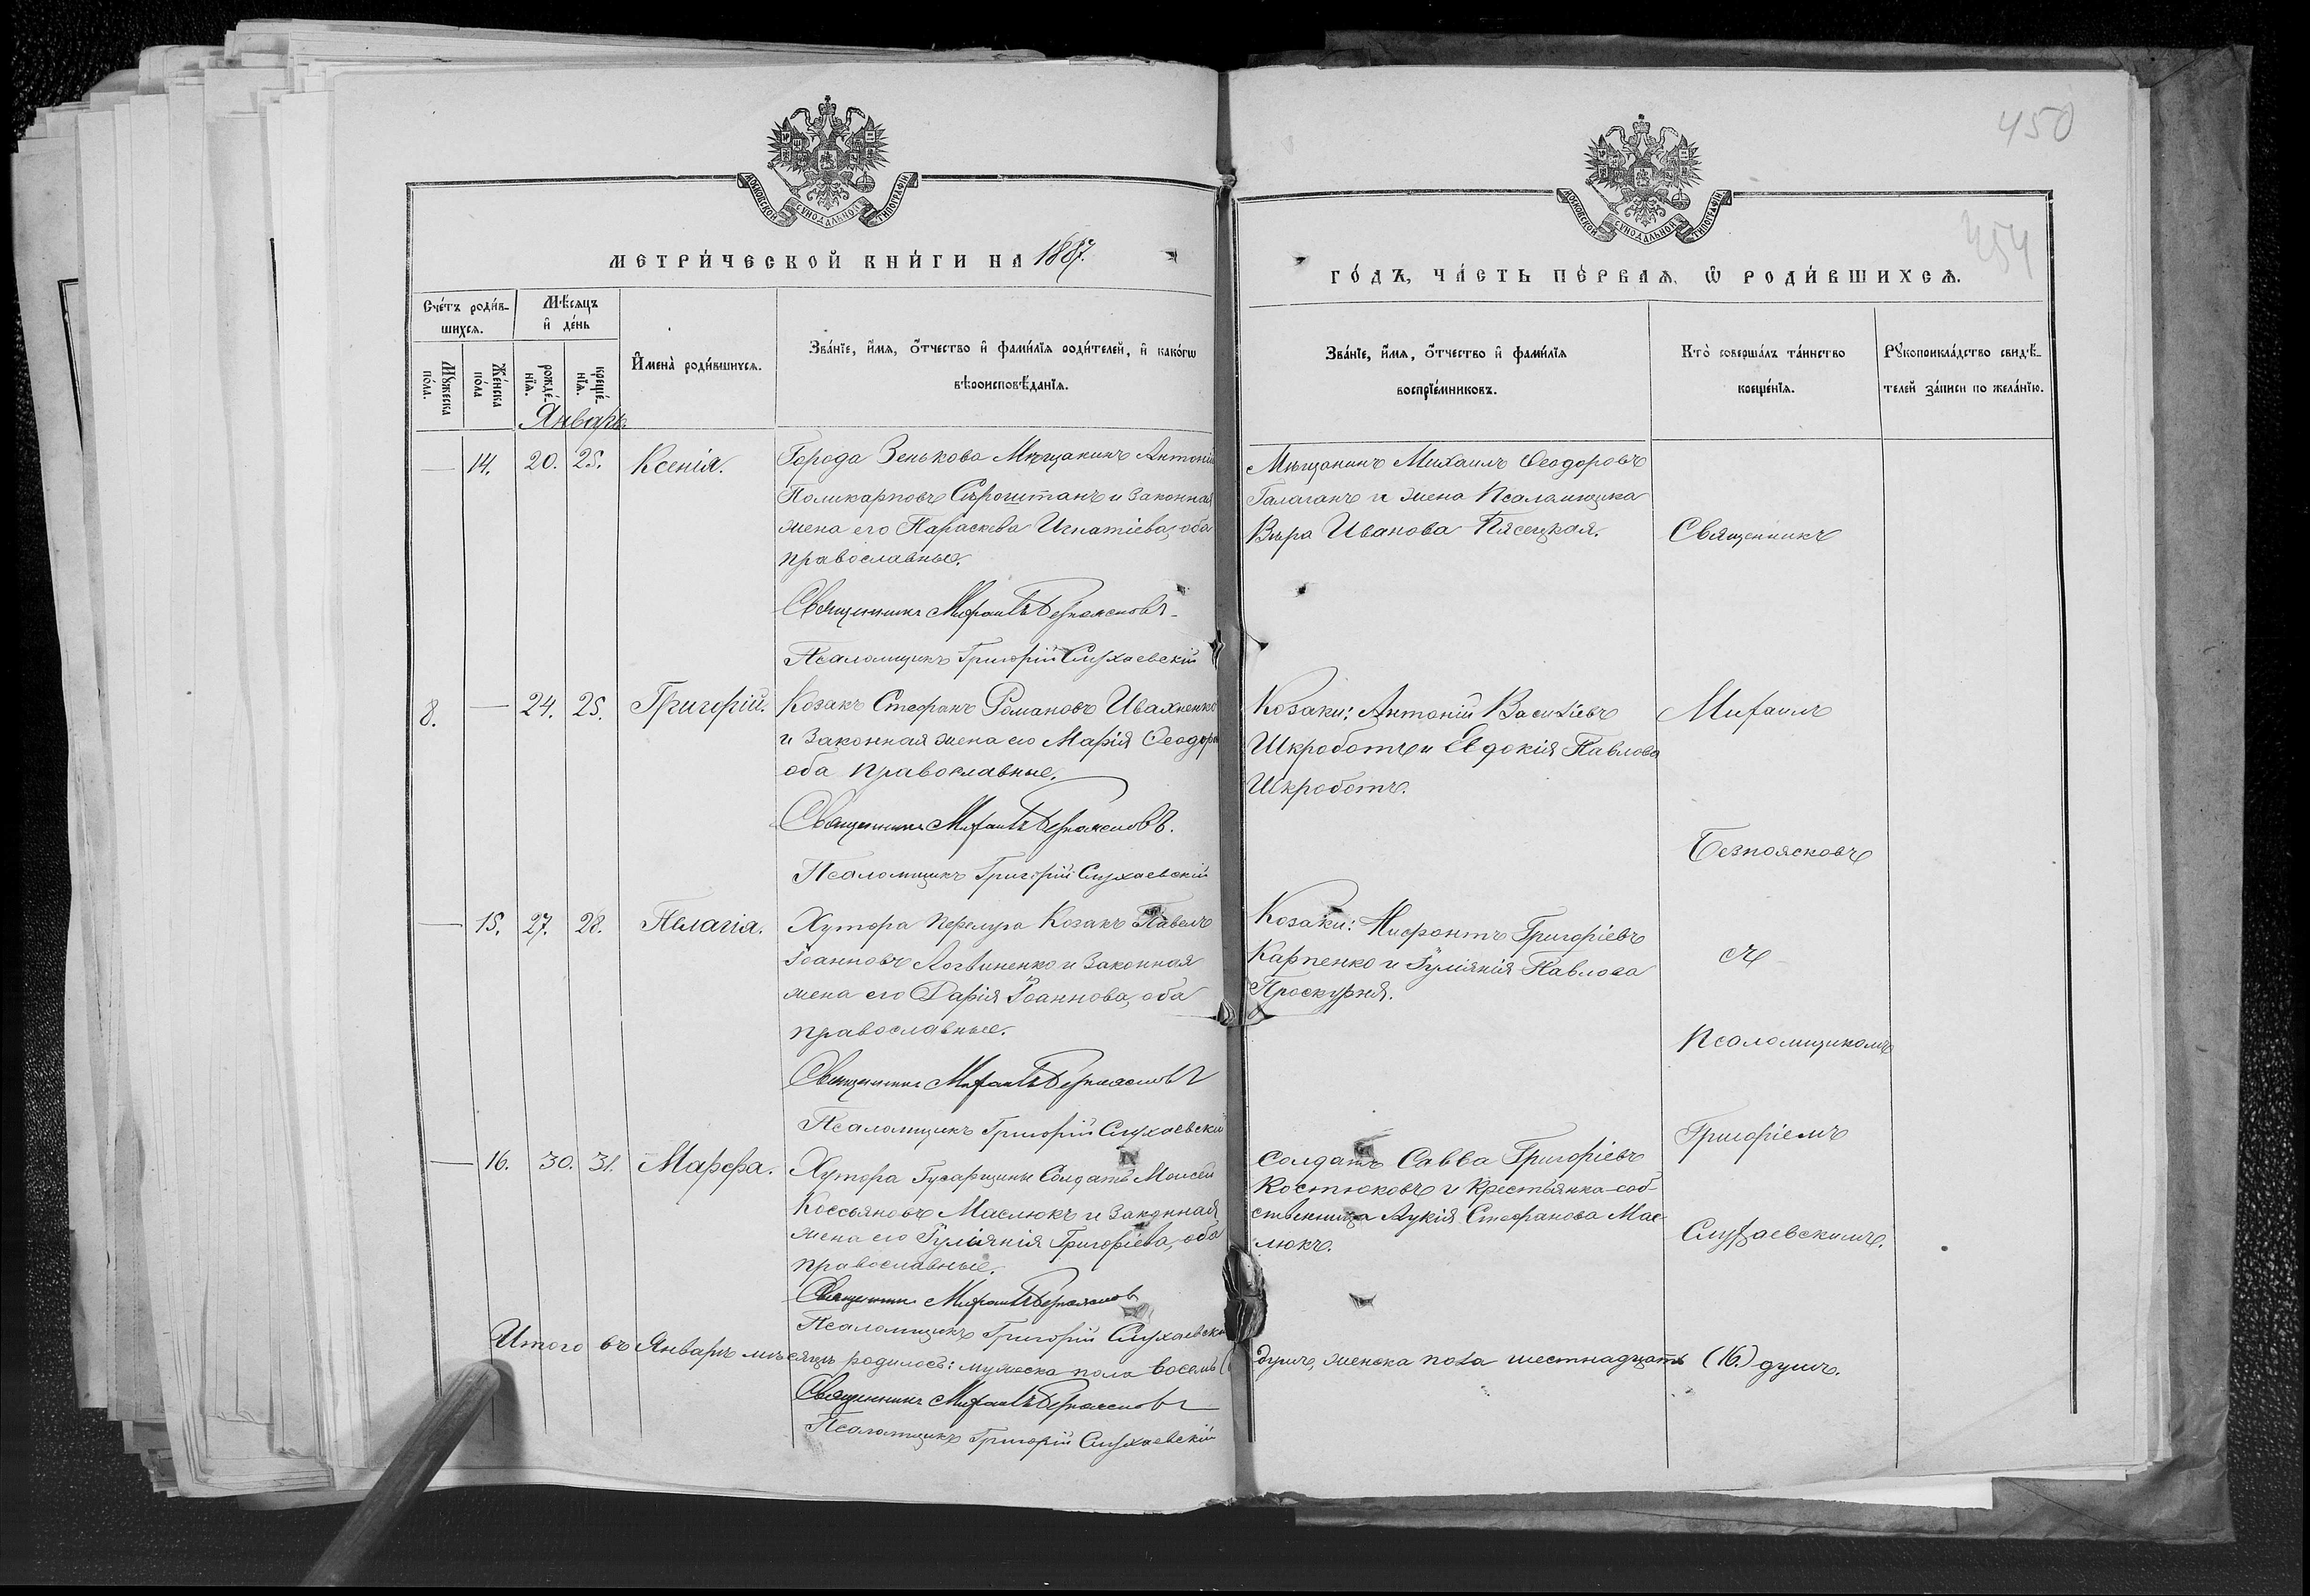 450
454
МОСКОВСКОЙ СѴНОДАЛЬНОЙ ТИПОГРАФІИ
МОСКОВСКОЙ СѴНОДАЛЬНОЙ ТИПОГРАФІИ
МЕТРИ́ЧЕСКОЙ КНИ́ГИ НА 1887.
ГО́ДЪ, ЧА́СТЬ ПЕ́РВАѦ, Ѿ РОДИ́ВШИХСѦ.
Сче́тъ роди́в-
шихсѧ.
Мѣ́сѧцъ
и҆ де́нь
Мꙋ́жеска
по́ла.
Же́нска
по́ла
рожде́-
нїѧ.
креще́-
нїѧ.
И҆мена̀ роди́вшихсѧ.
Зва́нїе, и҆́мѧ, ѻ҆́тчество и҆ фами́лїѧ роди́телей, и҆ како́гѡ
вѣроисповѣ́данїѧ.
Зва́нїе, и҆́мѧ, ѻ҆́тчество и҆ фами́лїѧ
воспрїе́мниковъ.
Кто̀ соверша́лъ та́инство
креще́нїѧ.
Рꙋкоприкла́дство свидѣ́-
телей за́писи по жела́нїю.
Январь.
— 14. 20. 25. Ксенія.
Города Зенькова Мѣщанинъ Антоній
Поликарповъ Сыроштанъ и законная
жена его Параскева Игнатіева, оба
православные.
Священникъ Михаилъ Безпоясковъ
Псаломщикъ Григорій Слухаевскій
Мѣщанинъ Михаилъ Ѳеодоровъ
Галаганъ и жена Псаломщика
Вѣра Иванова Пясецкая.
Священникъ
8. — 24. 25. Григорій.
Козакъ Стефанъ Романовъ Ивахненко
и законная жена его Марія Ѳеодоро
оба православные.
Священникъ Михаилъ Безпоясковъ.
Псаломщикъ Григорій Слухаевскій
Козаки: Антоній Василіевъ
Шкроботъ и Евдокія Павлова
Шкроботъ.
Михаилъ
Безпоясковъ
— 15. 27. 28. Пелагія.
Хутора Перелуга Козакъ Павелъ
Іоанновъ Логвиненко и законная
жена его Дарія Іоаннова, оба
православные.
Священникъ Михаилъ Безпоясковъ
Псаломщикъ Григорій Слухаевскій
Козаки: Нифонтъ Григоріевъ
Карпенко и Іуліянія Павлова
Проскурня.
съ
Псаломщикомъ
— 16. 30. 31. Марфа.
Хутора Гусарщины Солдатъ Моисей
Коссьяновъ Маслюкъ и законная
жена его Іуліянія Григоріева, оба
православные.
Священникъ Михаилъ Безпоясковъ
Псаломщикъ Григорій Слухаевскій
Солдатъ Савва Григоріевъ
Костюковъ и Крестьянка-соб-
ственница Лукія Стефанова Мас-
люкъ.
Григоріемъ
Слухаевскимъ.
Итого въ Январѣ мѣсяцѣ родилось: мужеска пола восемь ( душъ, женска пола шестнадцать (16.) душъ.
Священникъ Михаилъ Безпоясковъ
Псаломщикъ Григорій Слухаевскій